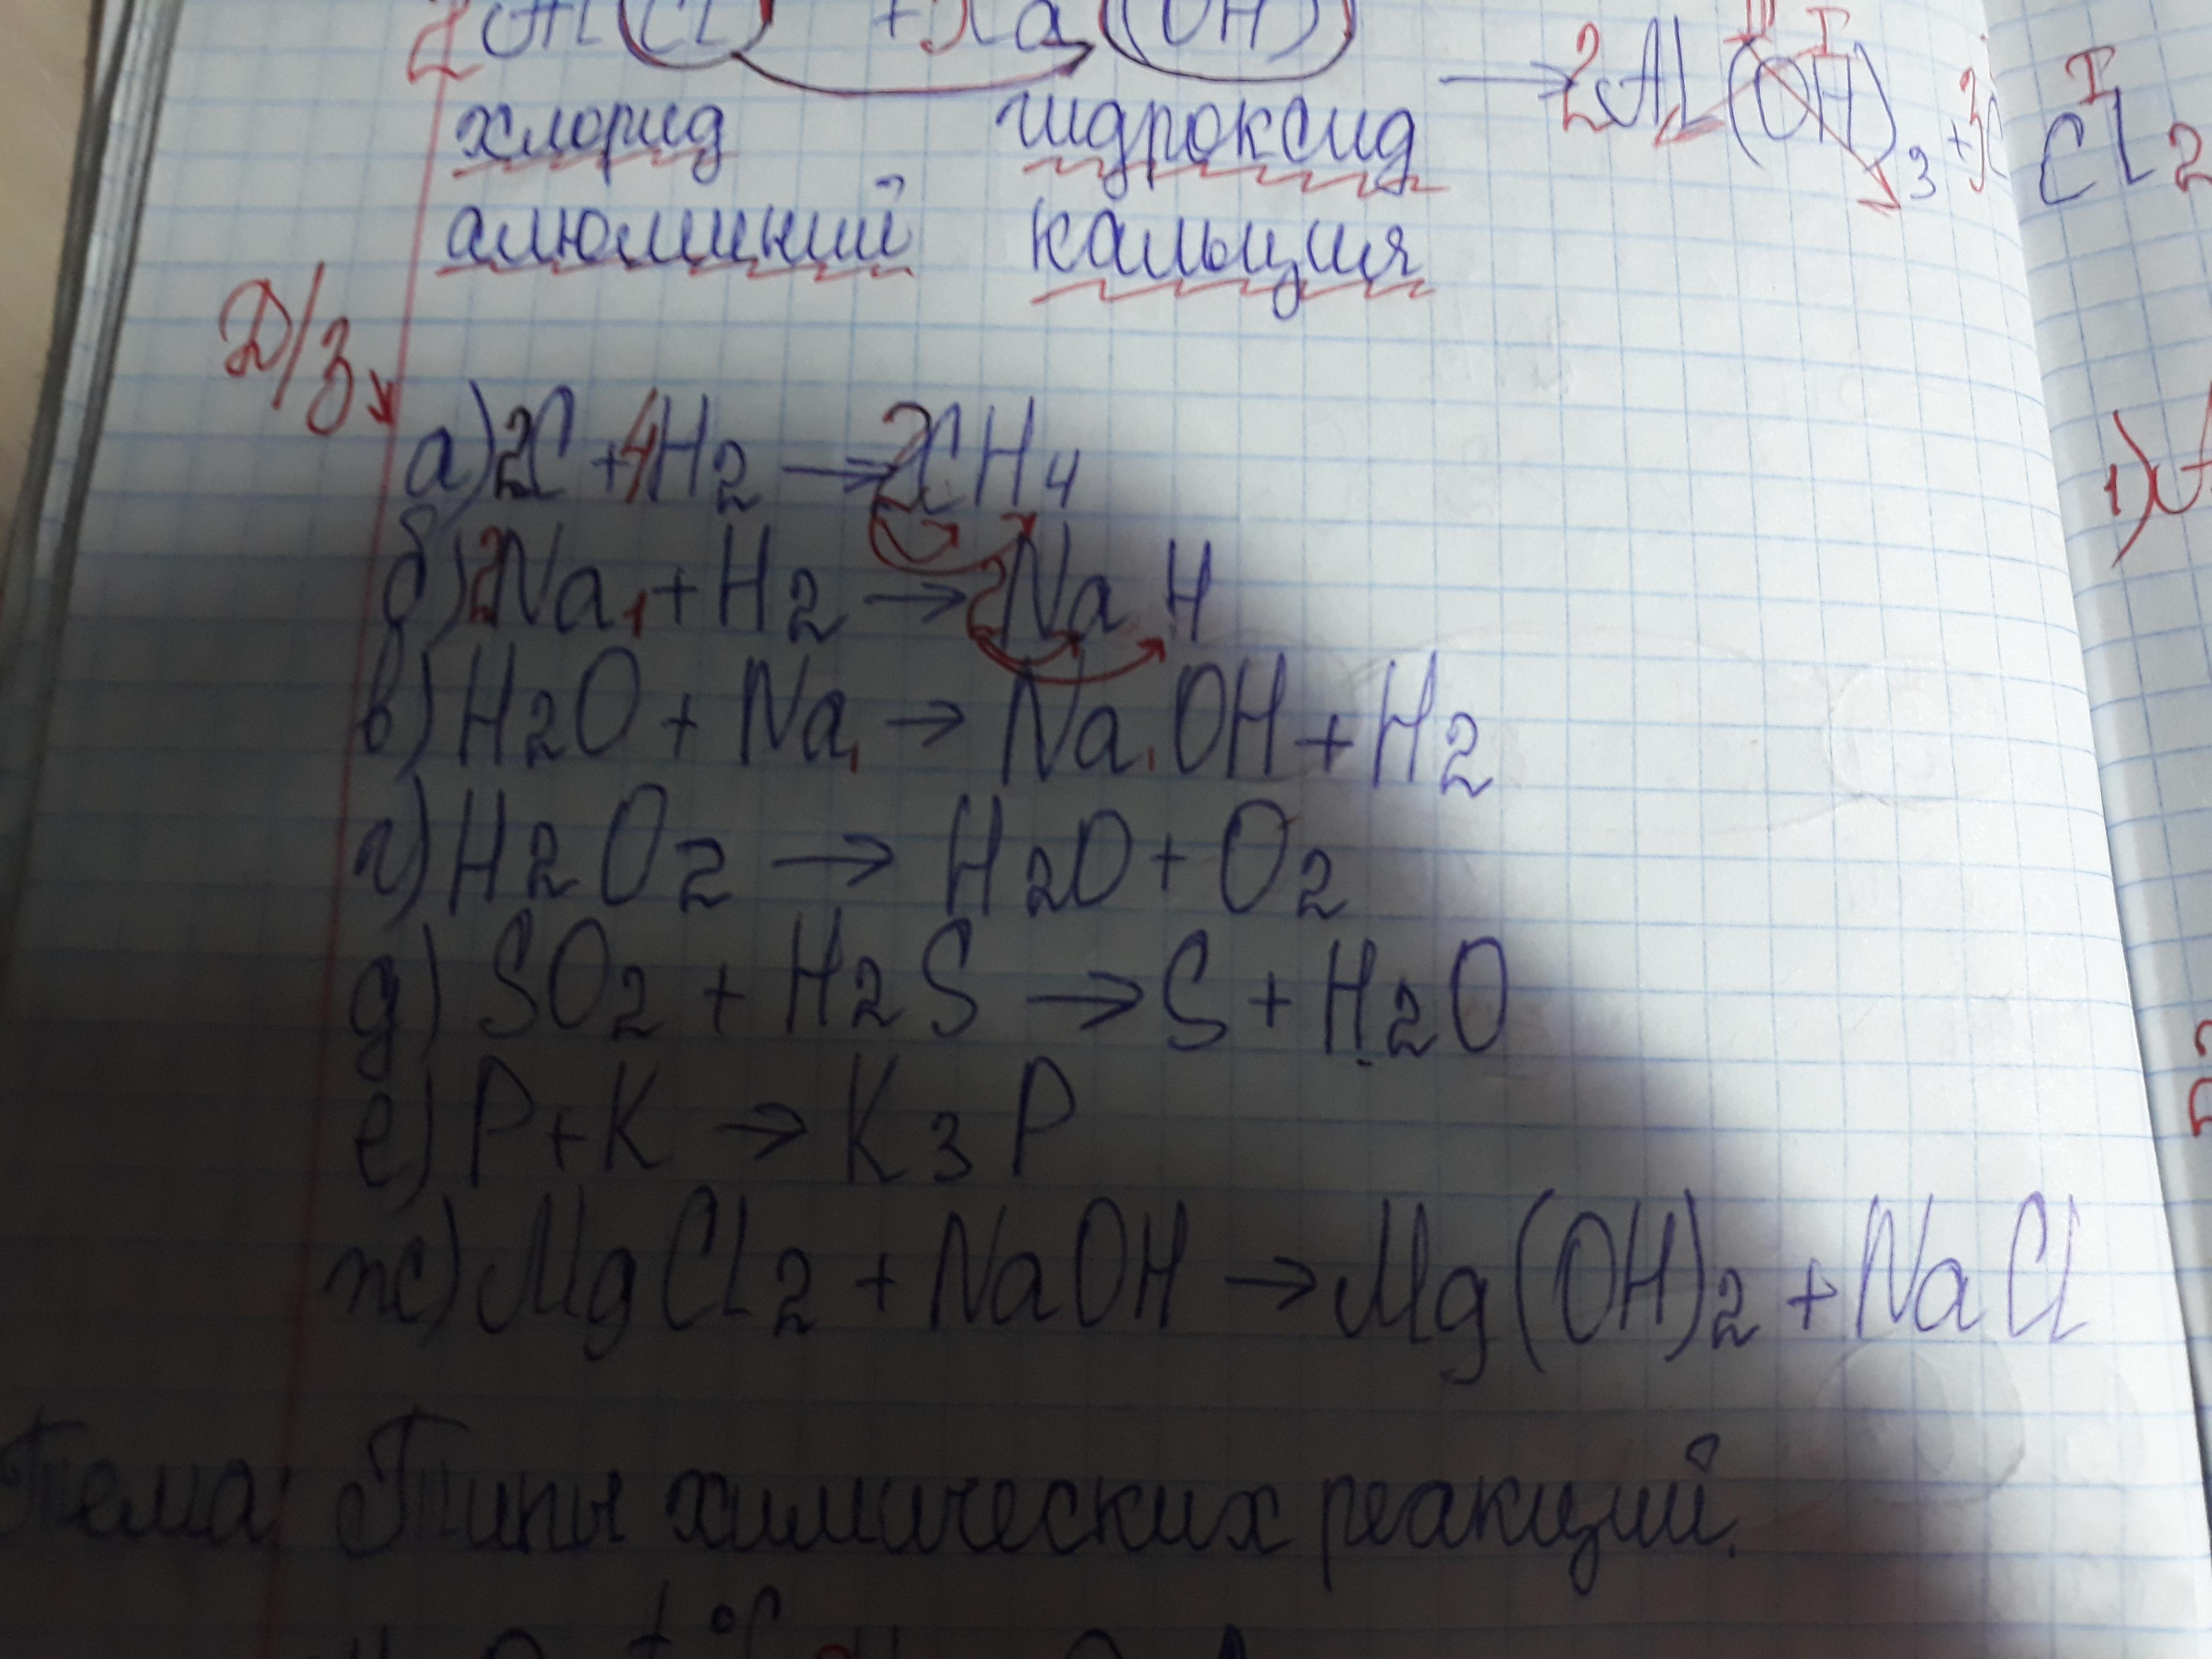 2 Al Cl + Ca (OH) → 2Al(OH)3 + 3C
III I
I
Cl2
хлорид гидроксид
алюминий кальция
Д/з
а) 2C + 4H2 → 2CH4
б) 2Na1 + H2 → 2Na H
в) H2O + Na1 → Na1OH + H2
г) H2O2 → H2O + O2
д) SO2 + H2S → S + H2O
е) P + K → K3P
ж) MgCl2 + NaOH → Mg(OH)2 + NaCl
Тема: Типы химических реакций.
t°C
1)